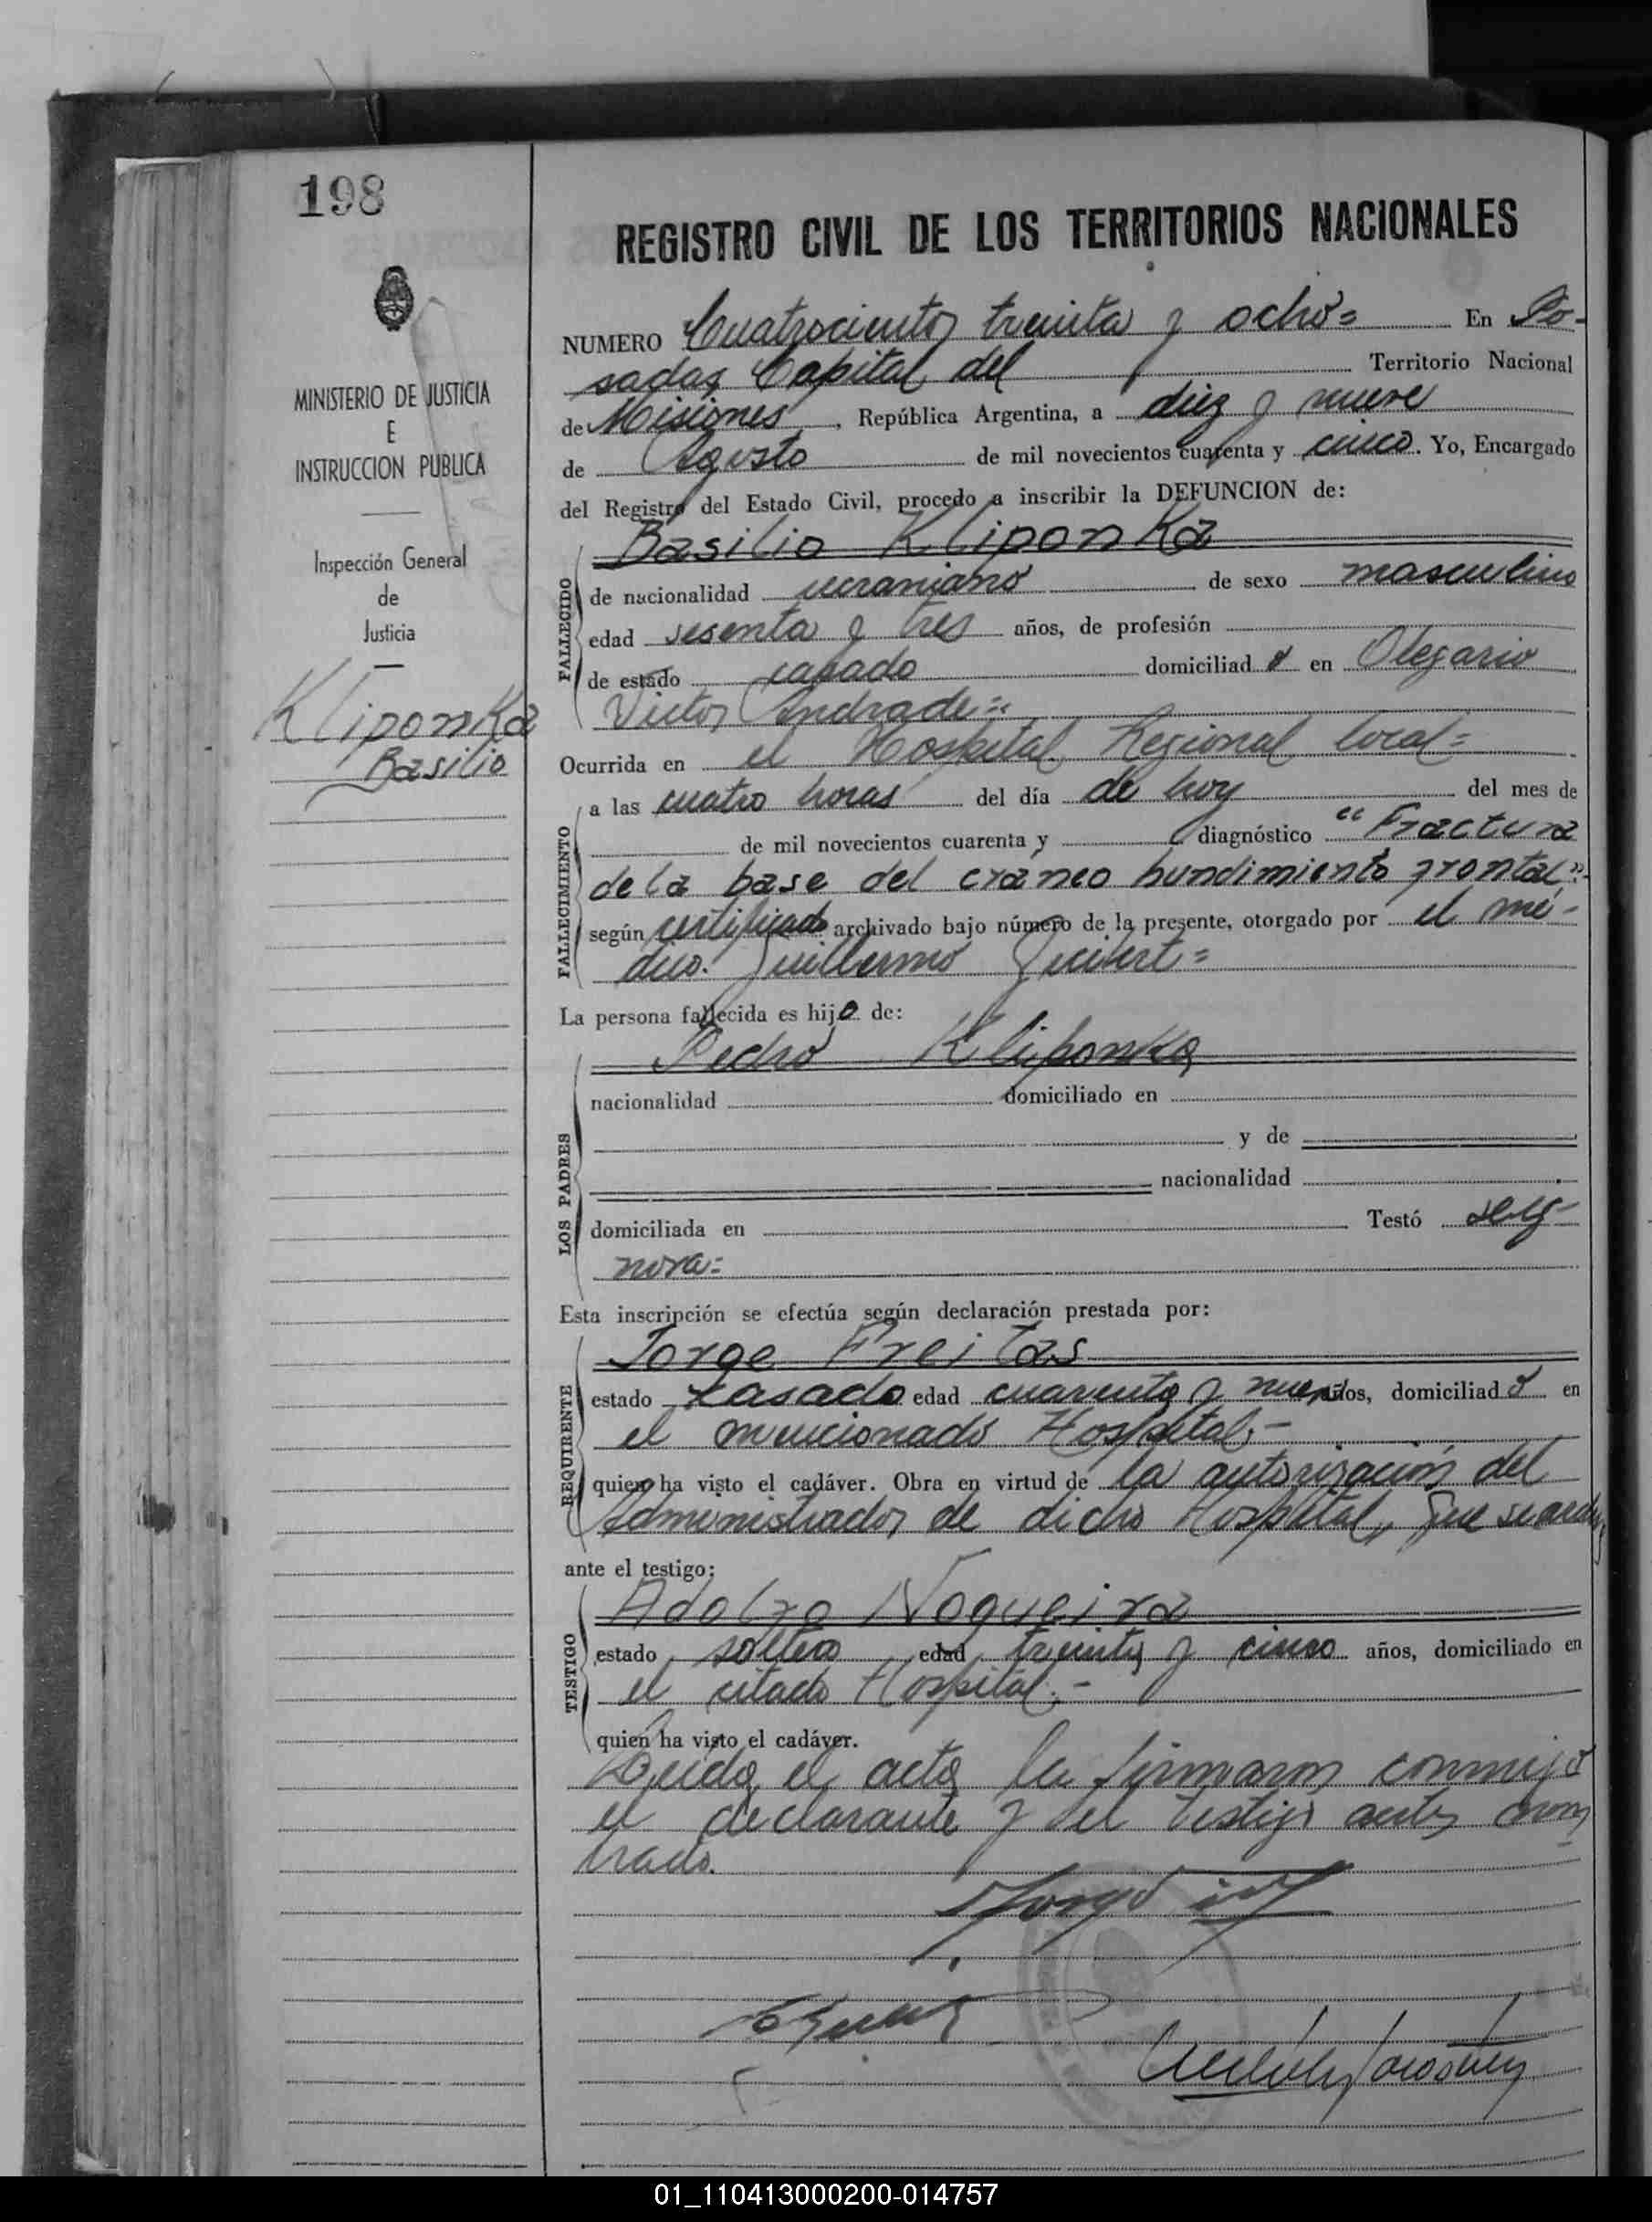 198
MINISTERIO DE JUSTICIA
E
INSTRUCCION PUBLICA
Inspección General
de
Justicia
Kliponka
Basilio
REGISTRO CIVIL DE LOS TERRITORIOS NACIONALES
NUMERO Cuatrocientos treinta y ocho= En Po-
sadas, Capital del Territorio Nacional
de Misiones, República Argentina, a diez y nueve
de Agosto de mil novecientos cuarenta y cinco. Yo, Encargado
del Registro del Estado Civil, procedo a inscribir la DEFUNCION de:
Basilio Kliponka
FALLECIDO
de nacionalidad ucraniano de sexo masculino
edad sesenta y tres años, de profesión
de estado casado domiciliado en Olegario
Victor Andrade=
Ocurrida en el Hospital Regional local=
FALLECIMIENTO
a las cuatro horas del día de hoy del mes de
de mil novecientos cuarenta y diagnóstico "Fractura
de la base del craneo hundimiento frontal"=
según certificado archivado bajo número de la presente, otorgado por el mé-
dico. Guillermo
La persona fallecida es hijo de:
Pedro Kliponka
LOS PADRES
nacionalidad domiciliado en
y de
nacionalidad
domiciliada en Testó se ig-
nora=
Esta inscripción se efectúa según declaración prestada por:
Jorge Freitas
REQUIRENTE
estado casado edad cuarenta y nueve años, domiciliado en
el mencionado Hospital,-
quien ha visto el cadáver. Obra en virtud de la autorización del
Administrador de dicho Hospital, que se
ante el testigo:
Adolfo Nogueira
TESTIGO
estado soltero edad treinta y cinco años, domiciliado en
el citado Hospital.-
quien ha visto el cadáver.
Leida el acta, la firmaron conmigo
el declarante y el testigo antes nom
brado.
01_110413000200-014757